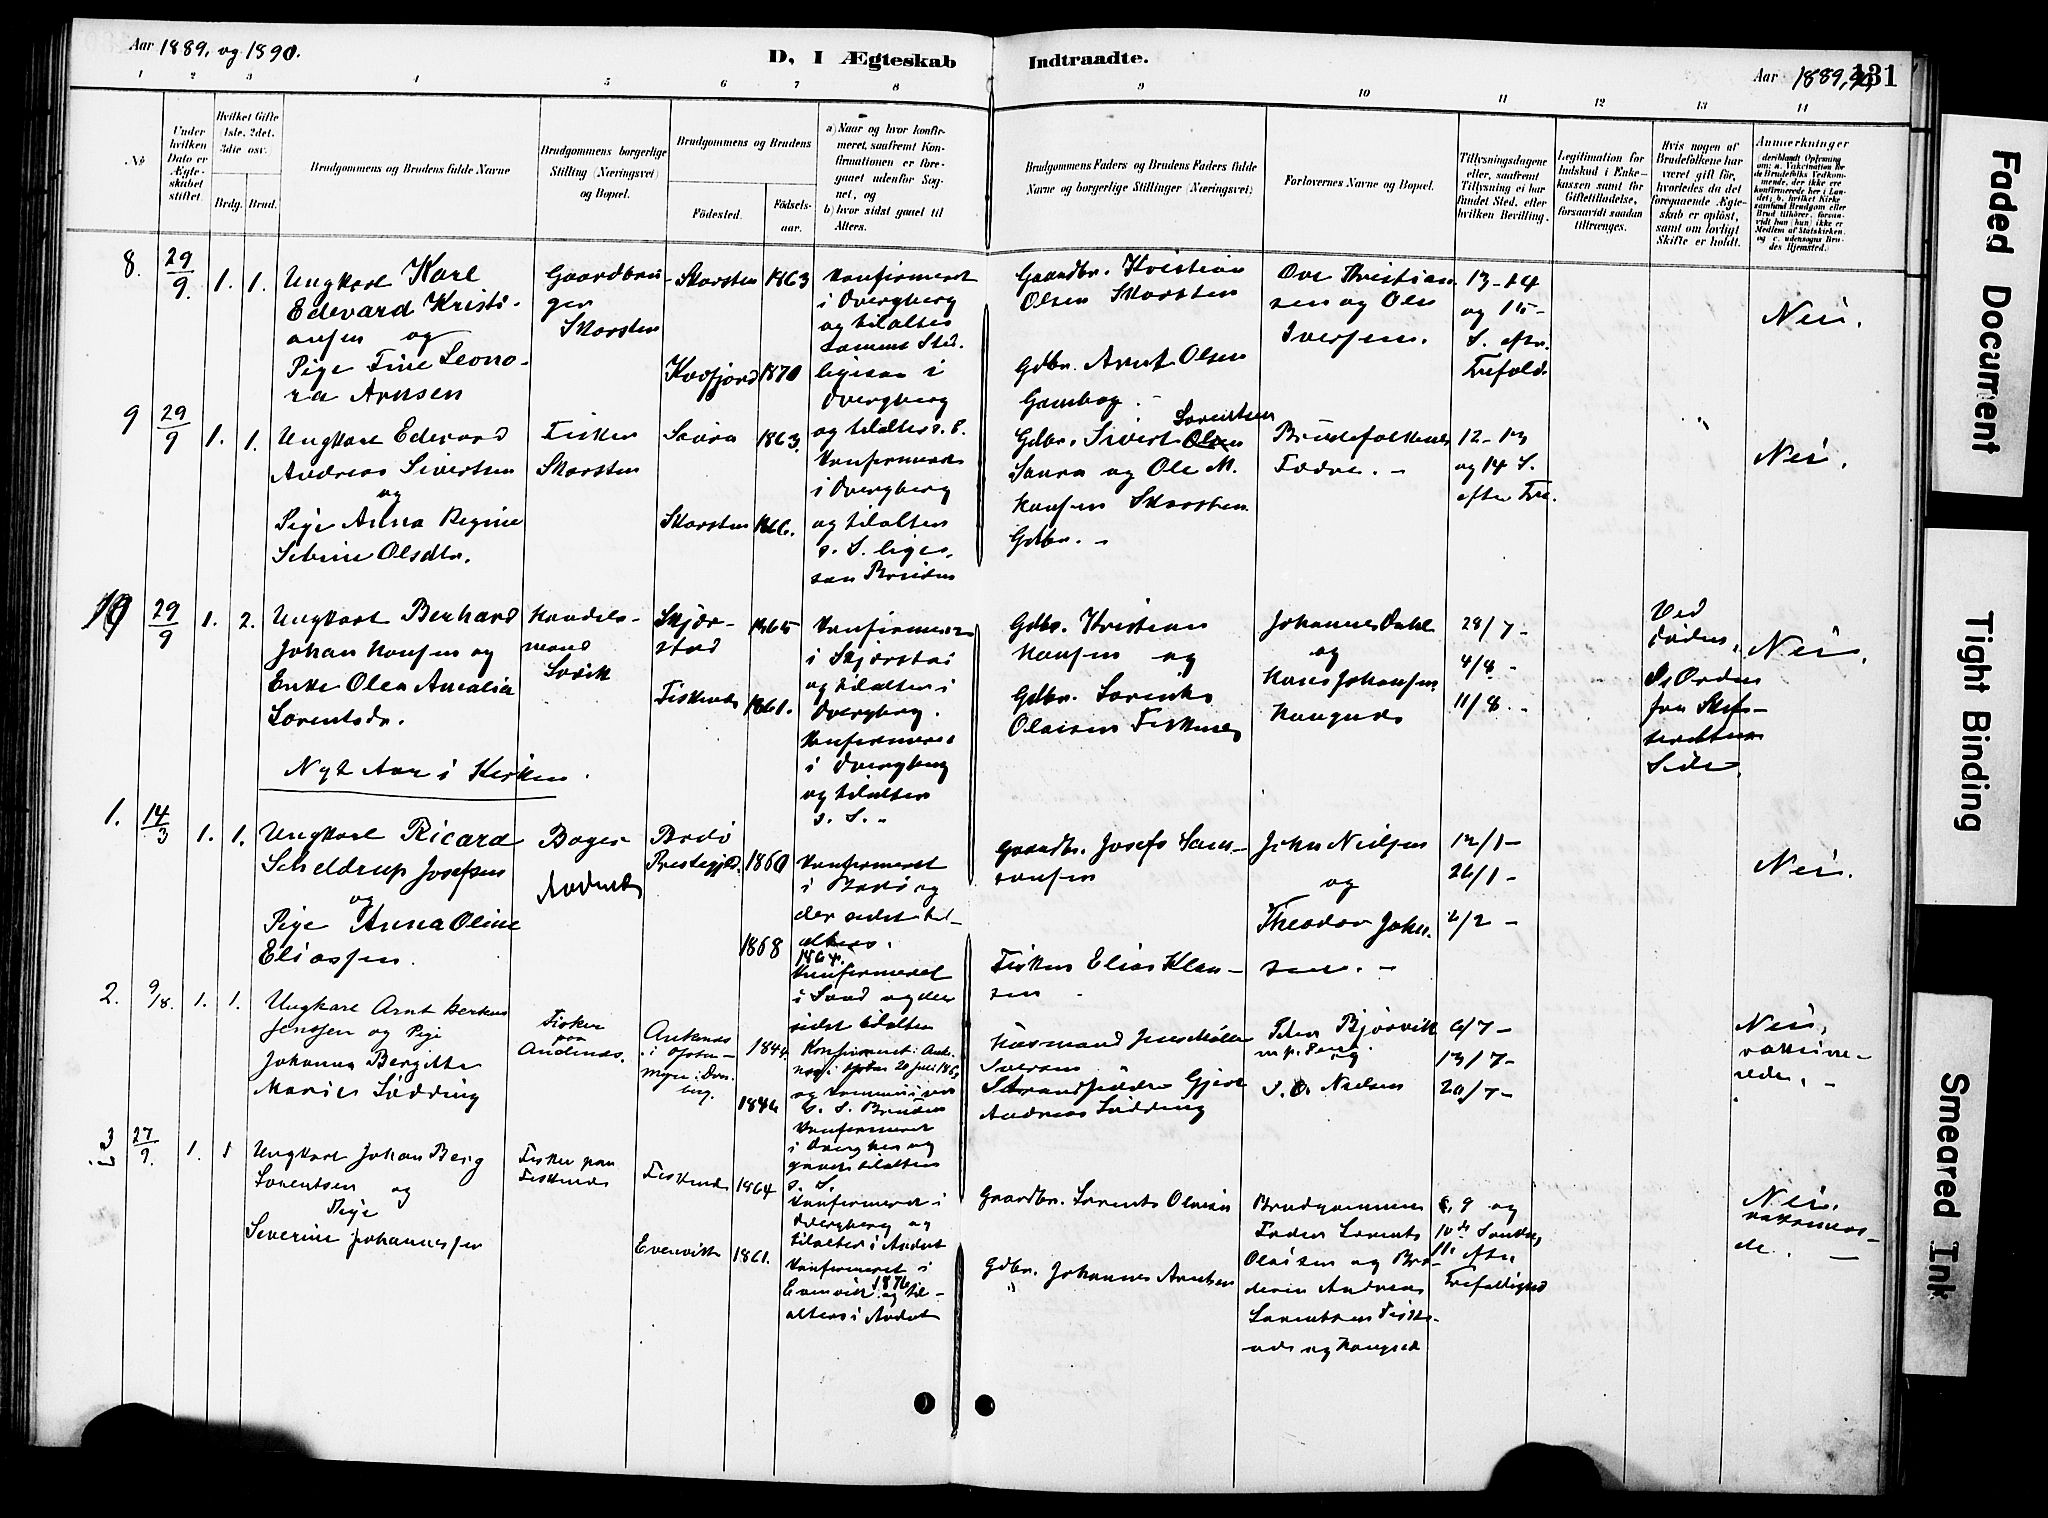 Aar 1889, og 1890.
D, I Ægteskab Indtraadte.
Aar 1889, 131
1 2 3 4 5 6 7 8 9 10 11 12 13 14
№
Under hvilken Dato er Ægteskabet stiftet.
Hvilket Gifte (1ste, 2det, 3die osv.
Brdg. Brud.
Brudgommens og Brudens fulde Navne
Brudgommens borgerlige Stilling (Næringsvei) og Bopæl.
Brudgommens og Brudens
Födested. Födsels-aar.
a) Naar og hvor konfirmeret, saafremt Konfirmationen er foregaaet udenfor Sognet, og
b) hvor sidst gaaet til Alters.
Brudgommens Faders og Brudens Faders fulde Navne og borgerlige Stillinger (Næringsvei)
Forlovernes Navne og Bopæl.
Tillysningsdagene eller, saafremt Tillysning ei har fundet Sted, efter hvilken Bevilling.
Legitimation for Indskud i Enkekassen samt for Giftetilladelse, forsaavidt saadan tiltrænges.
Hvis nogen af Brudefolkene har været gift før, hvorledes da det foregaaende Ægteskab er opløst, samt om lovligt Skifte er holdt.
Anmærkninger
8. 29/9. 1. 1.
Ungkarl Karl
Edevard Kristi-
ansen og
Pige Fine Leono-
ra Arnsen
Gaardbru-
ger
Skarsten
Skarsten 1863
Kvæfjord 1870
Konfirmeret
i Dverberg
og tilalters
samme Sted.
ligesaa i
Dverberg
og tilalters s. S.
Gaardbr. Kristian
Olsen Skarsten
Gdbr. Arnt Olsen
Ove Kristian
sen og Ole
Iversen.
13-14
og 15-
S. eftr.
Trefold.
Nei.
9 29/9 1. 1.
Ungkarl Edevard
Andreas Sivertsen
og
Pige Anna Regine
Sebrine Olsdtr.
Fisker
Skarsten
Saura 1863.
Skarsten 1866.
Konfirmeret
i Dverberg
og tilalters
s. S. liges.
saa Bruden
Gdbr. Sivert Olsen Lorentsen
Saura og Ole M.
Hansen Skarsten
Gdbr. -
Brudefolkenes
Fædre. -
12-13
og 14 S.
efter Tre.
Nei.
10 29/9 1. 2.
Ungkarl Benhard
Johan Hansen og
Enke Olea Amalia
Lorentsdr.
Handels-
mand
Skjer-
stad 1865
Fiskenes 1861.
Konfirmeret
i Skjerstad
og tilalters i
Dverberg.
Konfirmeret
i Dverberg
og tilalters
s. S. -
Gdbr. Kristian
Hansen og
Gdbr. Lorents
Olaisen Fiskenes
Johannes Dahl
og
Hans Johansen
Haugnes
28/7 -
4/8 -
11/8. -
Ved
Døden,
I Orden
fra Skif-
terettens
Side.
Nei.
Nyt Aar i Kirken.
1. 14/3 1. 1.
Ungkarl Ricard
Scheldrup Josefsen
og
Pige Anna Oline
Eliassen.
Bager
Andenes
Bodö
Prestegjld. 1860
1868
Konfirmeret
i Bodö og
der sidst til-
alters.
1864.
Konfirmeret
i Sand og der
sidst tilalters
Gaardbr. Josefs Sam-
sonsen
Fisker Elias Klau-
sen
John Nielsen
og
Theodor John-
sen. -
12/1 -
26/1 -
2/2 -
Nei.
2. 9/8. 1. 1.
Ungkarl Arnt
Jenssen og Pige
Johanna Bergitte
Marie Lødding
Fisker
paa
Andenes.
Ankenes
i Ofoten -
1844.
1846
Konfirmeret i Anke-
nes i Ofoten
s. S. Bruden
Konfirmeret
i Dverberg og
s. S.
Husmand Jens
Iversen
Andreas Lødding
Peter Bjørvik
m. p. og
Nielsen
6/7 -
13/7 -
20/7 -
Nei,
vaksine-
rede. -
3 27/9. 1. 1
Ungkarl Johan Berg
Lorentsen og
Pige
Severine Johannessen
Fisker paa
Fiskenes
Fiskenes 1864
Evenvik 1861.
Konfirmeret i
Dverberg og
tilalters i Andnt
Konfirmeret i
Evenvik 1876 og til-
alters i Andnt
Gaardbr. Lorents Olaisen
Gdbr. Johannes Arntsen
Brudgommens
Fader Lorents
Olaisen og Bro-
deren Andreas
Lorentsen Fiske-
nes og Haugnes
8, 9 og
10de Søndag
11. efter
Trefoldighed
Nei,
vaksinere-
de. -
Faded Document
Tight Binding
Smeared Ink